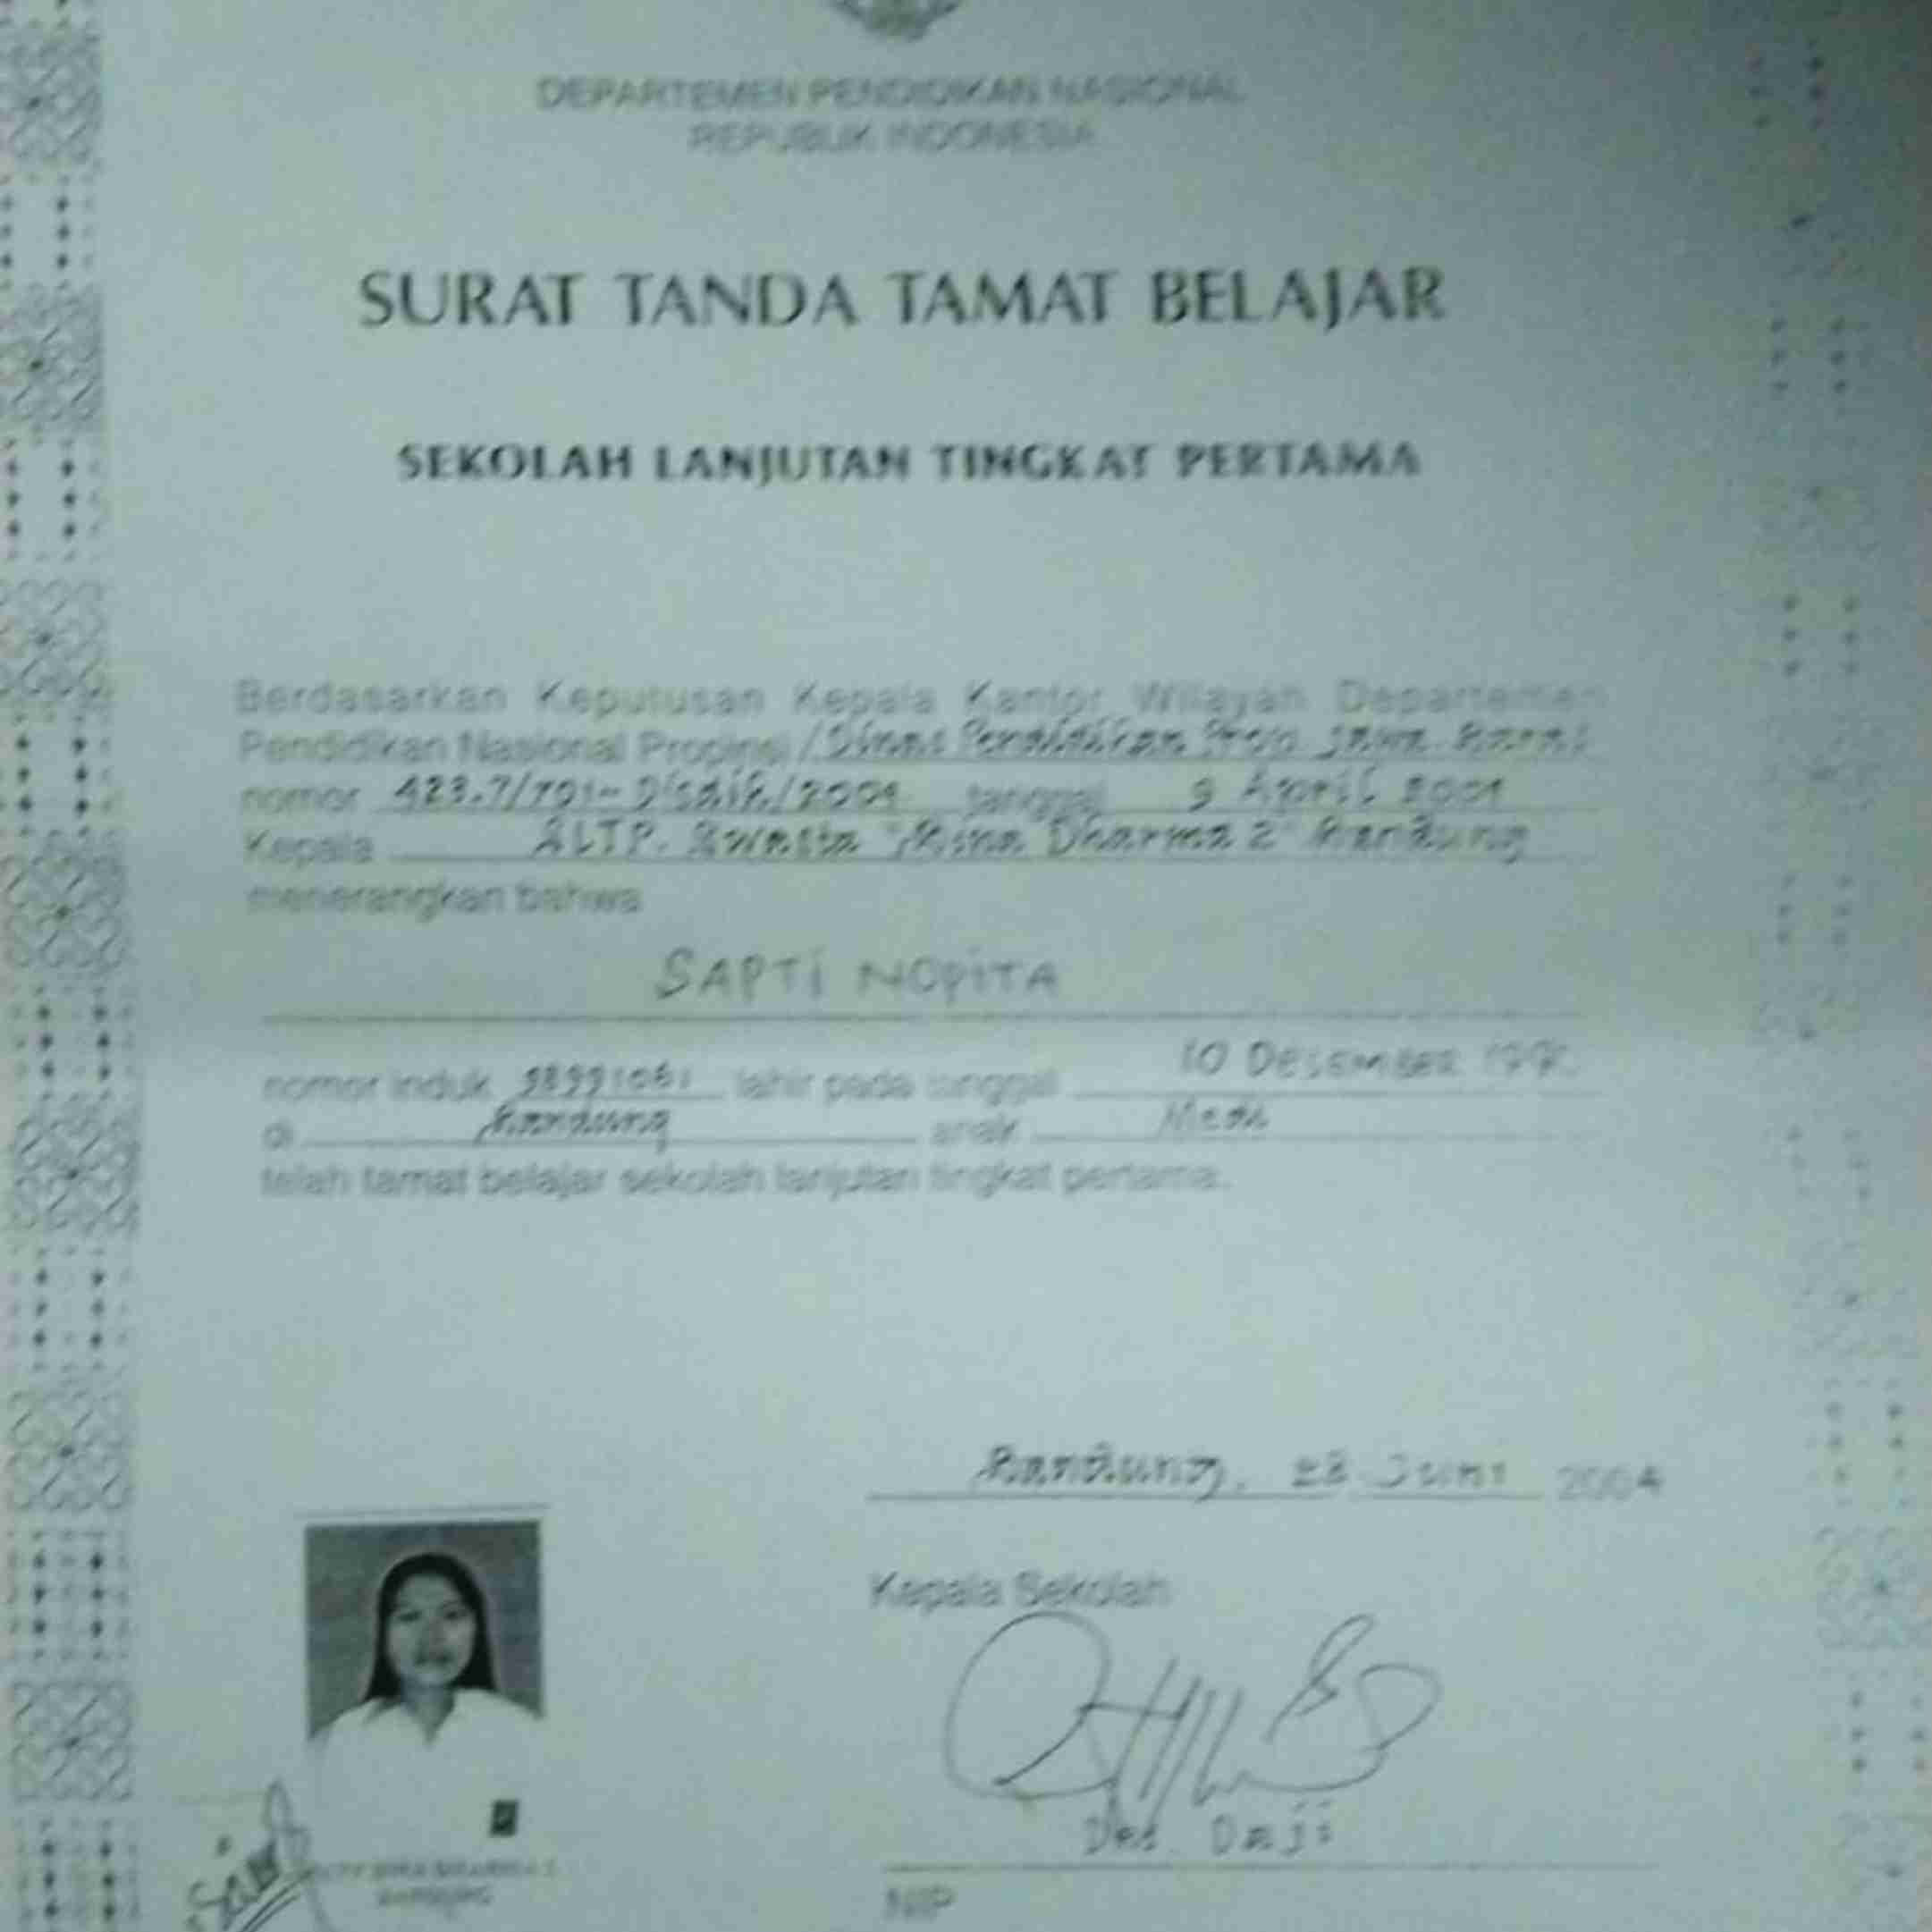 DEPARTEMEN PENDIDIKAN NASIONAL
REPUBLIK INDONESIA
SURAT TANDA TAMAT BELAJAR
SEKOLAH LANJUTAN TINGKAT PERTAMA
Berdasarkan Keputusan Kepala Kantor Wilayah Departemen
Pendidikan Nasional Propinsi / Dinas Pendidikan Prop. Jawa Barat
nomor tanggal 9 April 2001
Kepala SLTP. Swasta "Bina Dharma 2" Bandung
menerangkan bahwa
SAPTI NOPITA
nomor induk 98991061 lahir pada tanggal 10 DESEMBER
di Bandung anak
telah tamat belajar sekolah lanjutan tingkat pertama.
Bandung, 28 Juni
Kepala Sekolah
Drs. Daji
SLTP BINA DHARMA 2
BANDUNG
NIP